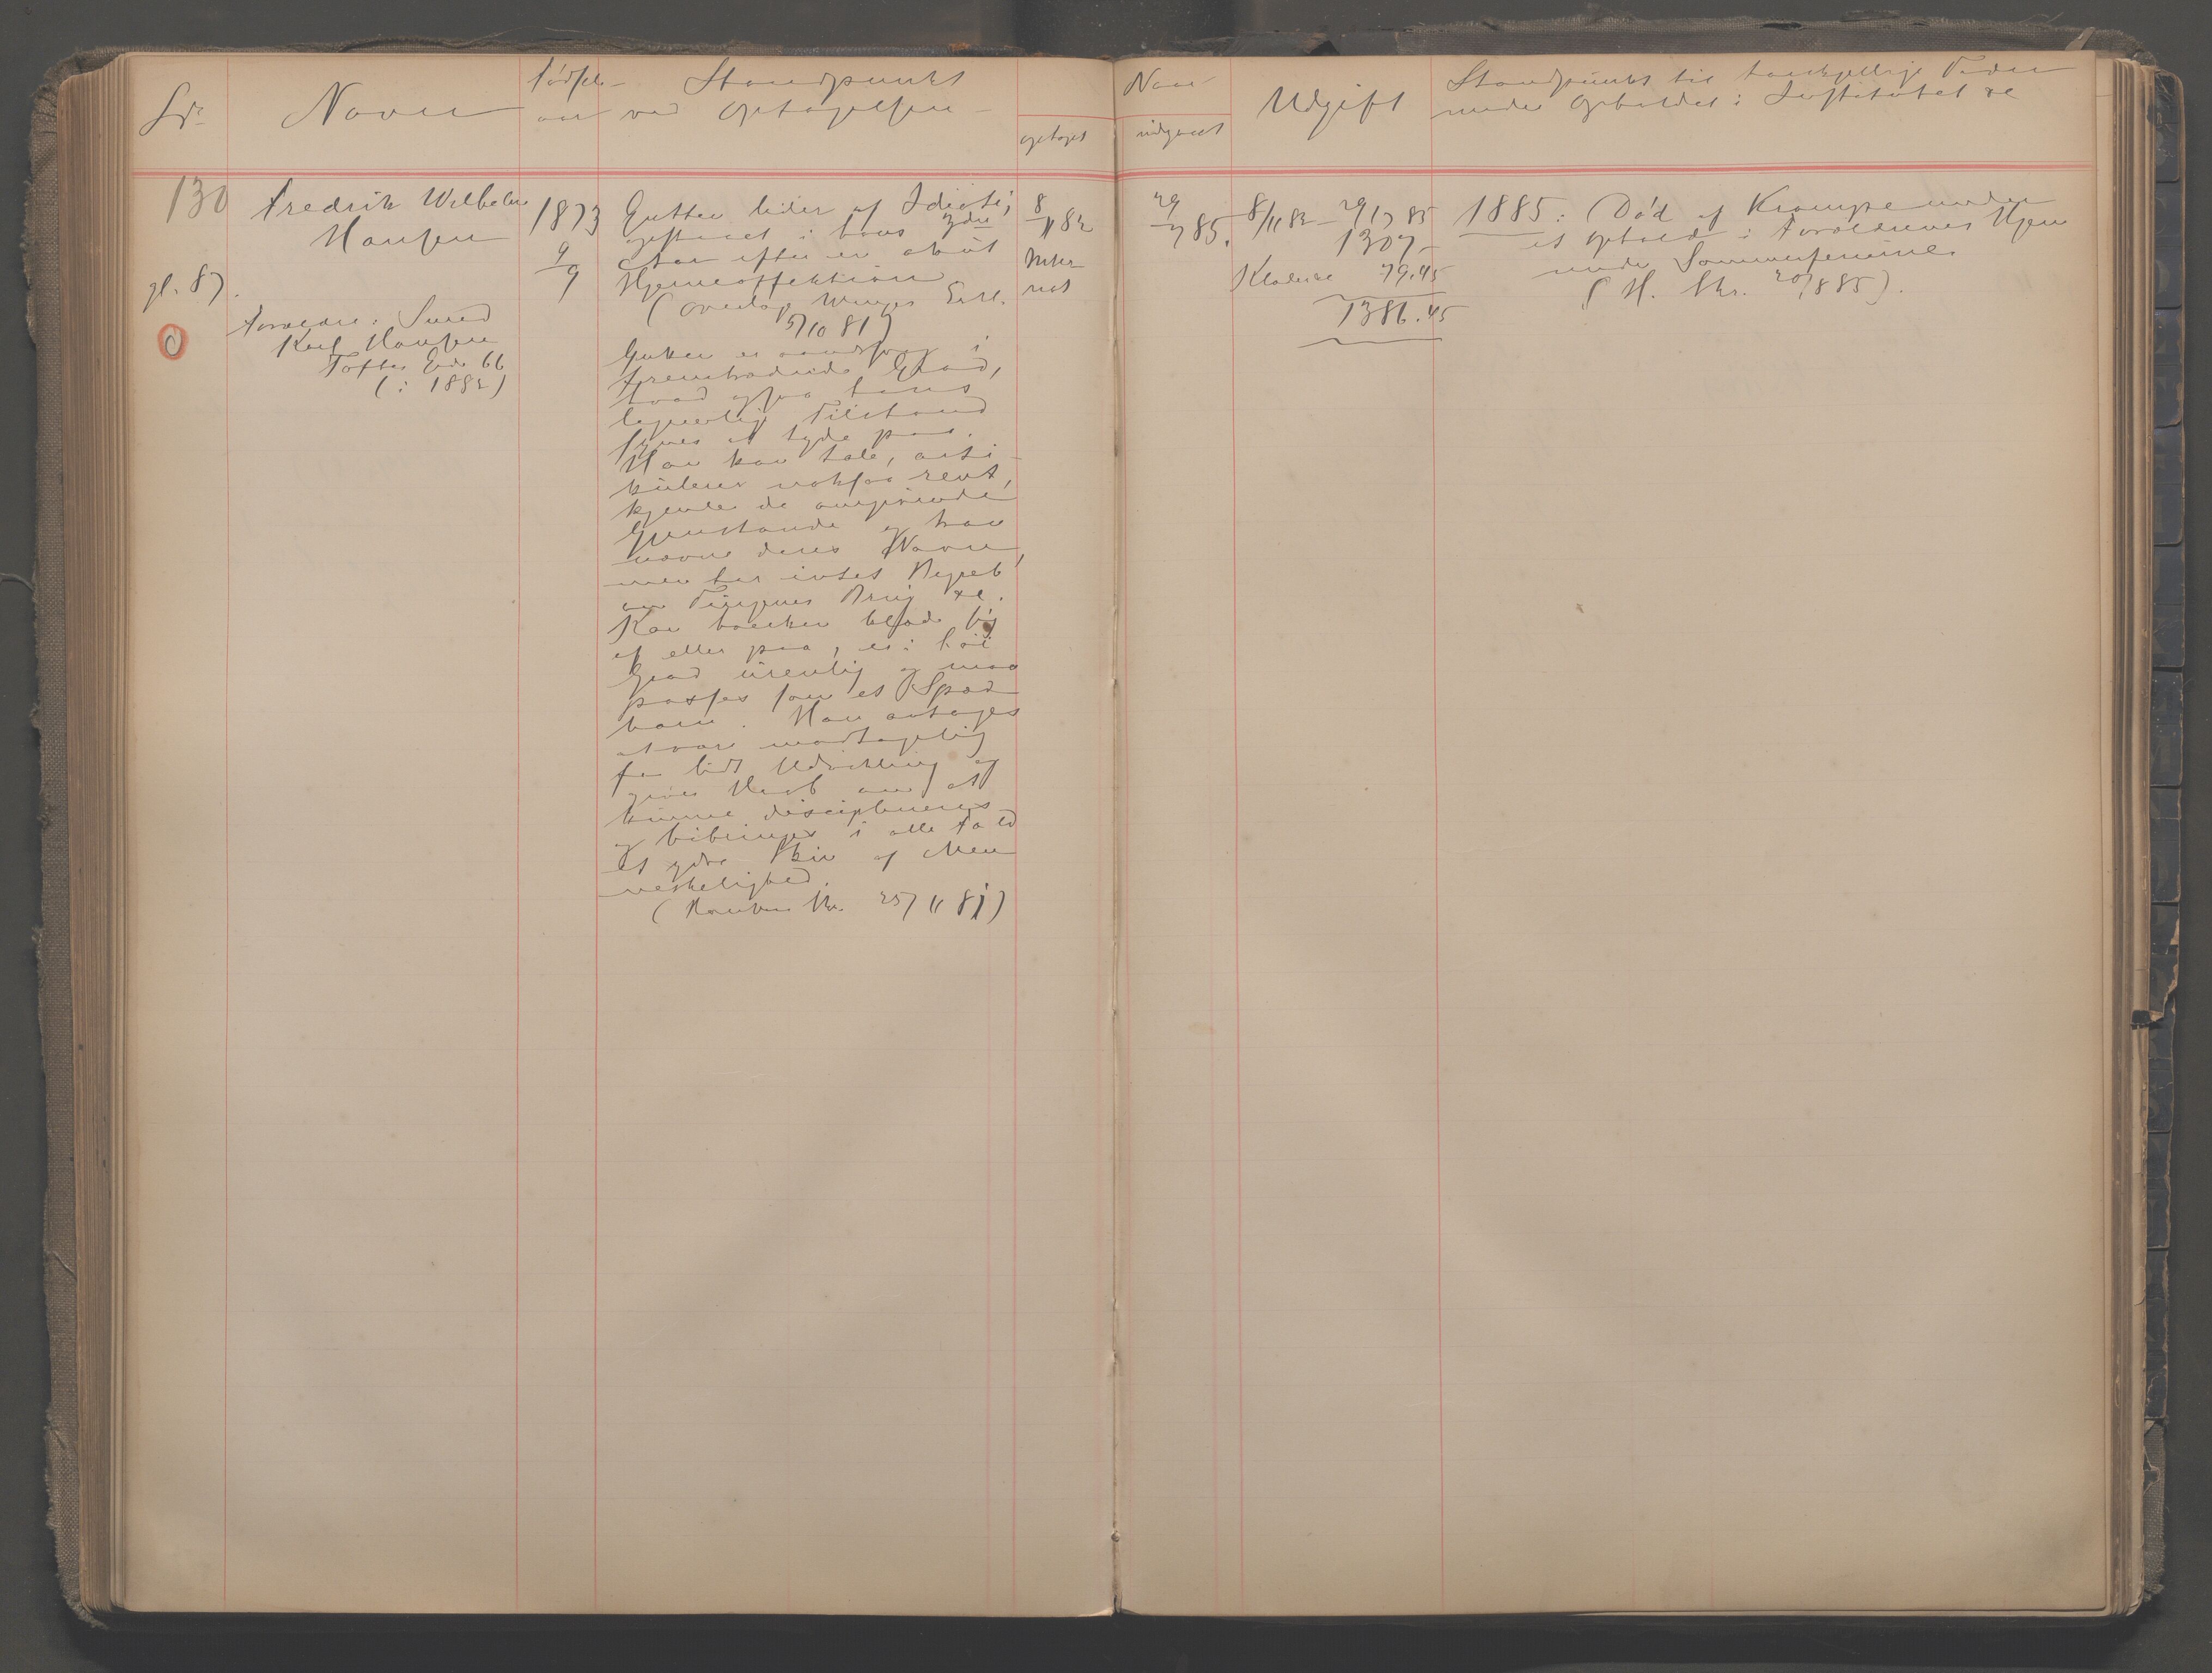 Naar
Lda Navn Fødsels- aar Standpunkt ved Optagelsen
optaget udgaaet Udgift Standpunkt til forskjellige Tider
under Opholdet i Institutet &c
130
gl. 87.
Fredrik Wilhelm
Hansen
Forældre: Smed
Karl Hansen
Toftes Gade 66
(i 1882)
1873
9/9
Gutten lider af Idioti,
opstaaet i hans 3die
Aar efter en akut
Hjerneaffektion
(Overlæge Winges Erkl.
5/10 81)
Gutten er aandssvag i
fremtrædende Grad,
hvad ogsaa hans
legemlige Tilstand
synes at tyde paa.
Han kan tale, arti-
kulerer noksaa rent,
kjender de omgivende
Gjenstande og kan
nævne deres Navne,
men har intet Begreb
om Tingenes Brug &c.
Kan hverken klæde sig
af eller paa, er i høi
Grad urenlig og maa
passes som et Spæd-
barn. Han antages
at være modtagelig
for lidt Udvikling og
giver Haab om at
kunne disciplineres
og bibringes i alle Fald
et ydre Skin af Men-
neskelighed.
(Hansens Skr. 25/11 81)
8/11 82
Inter-
nat
29/7 85.
8/11 82 – 29/7 85
1307 –
Klæder &c 79.45
1386.45
1885: Død af Krampe under
et Ophold i Forældrenes Hjem
under Sommerferierne
(H. Skr. 20/8 85).